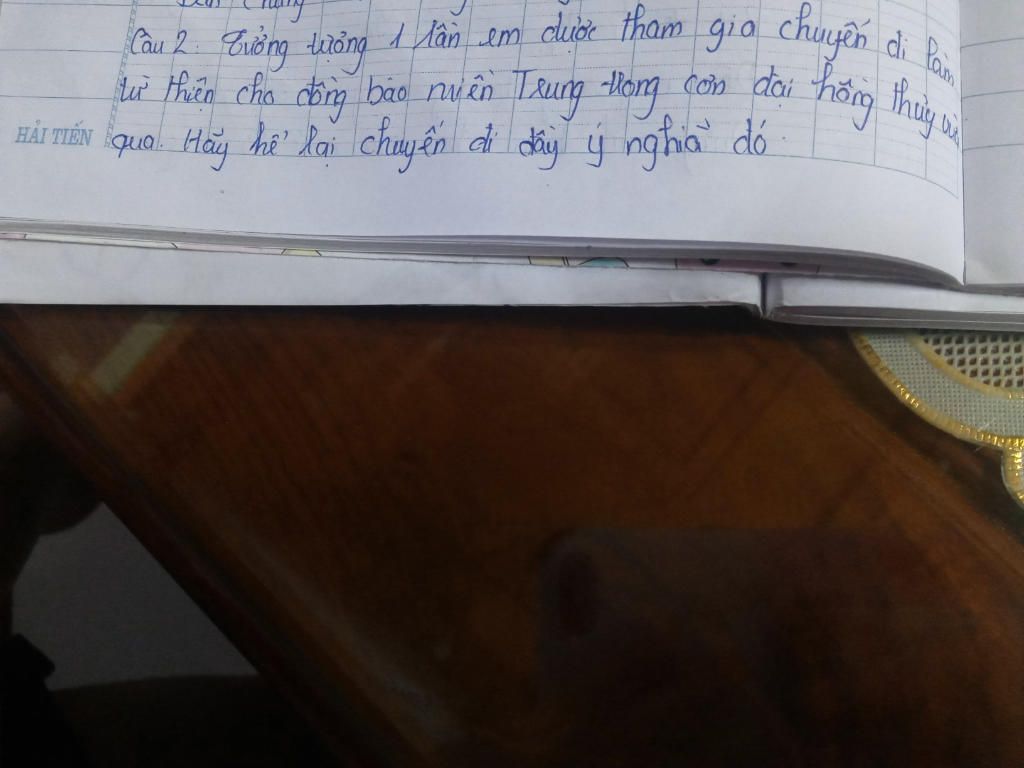 Câu 2. Tưởng tượng 1 lần em được tham gia chuyến đi làm
từ thiện cho đồng bào miền Trung trong cơn đại hồng thủy vừa
HẢI TIẾN qua. Hãy kể lại chuyến đi đầy ý nghĩa đó.